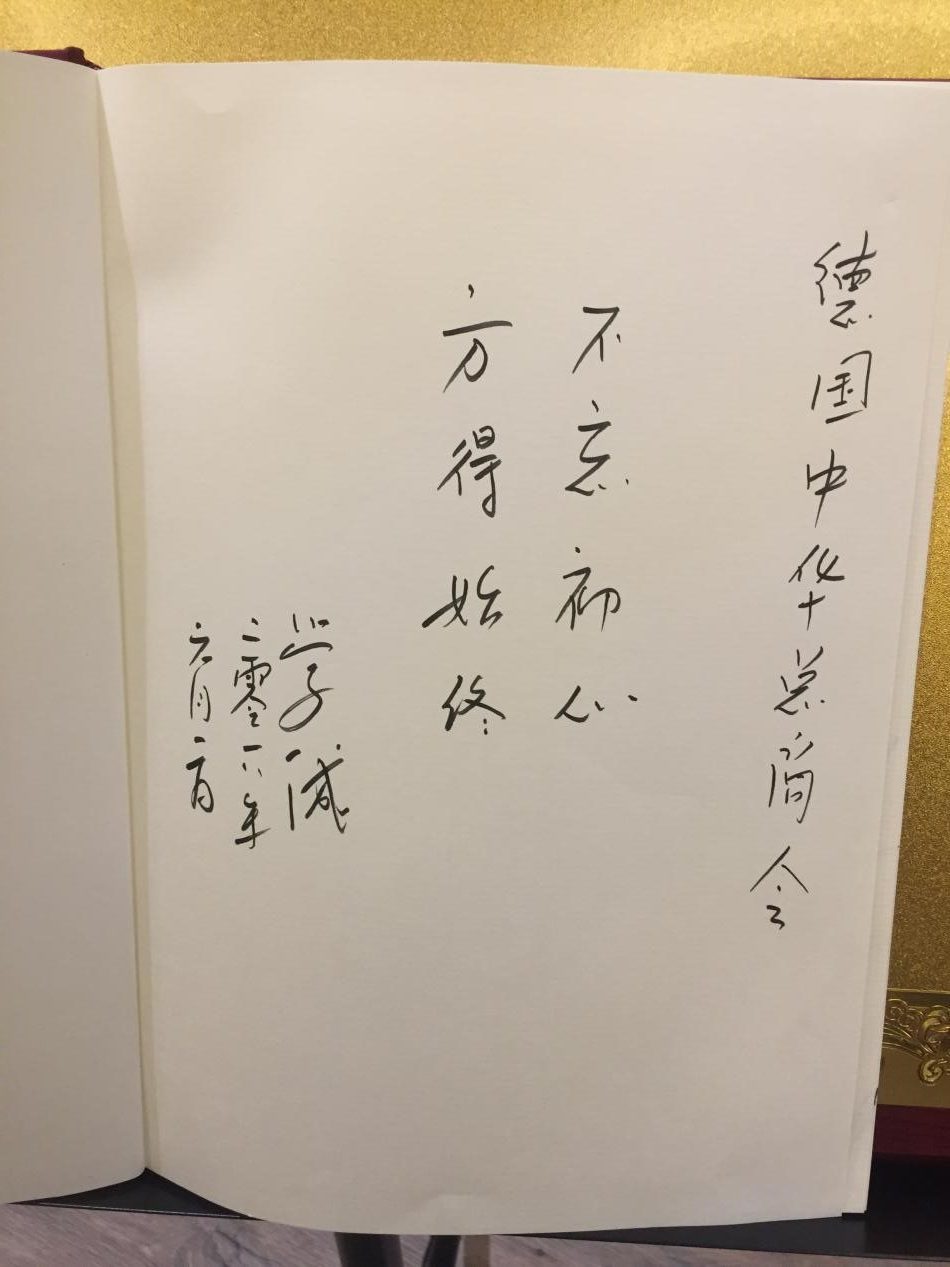 德国中华总商会
不忘初心
方得始终
学诚
二零一六年
六月二日